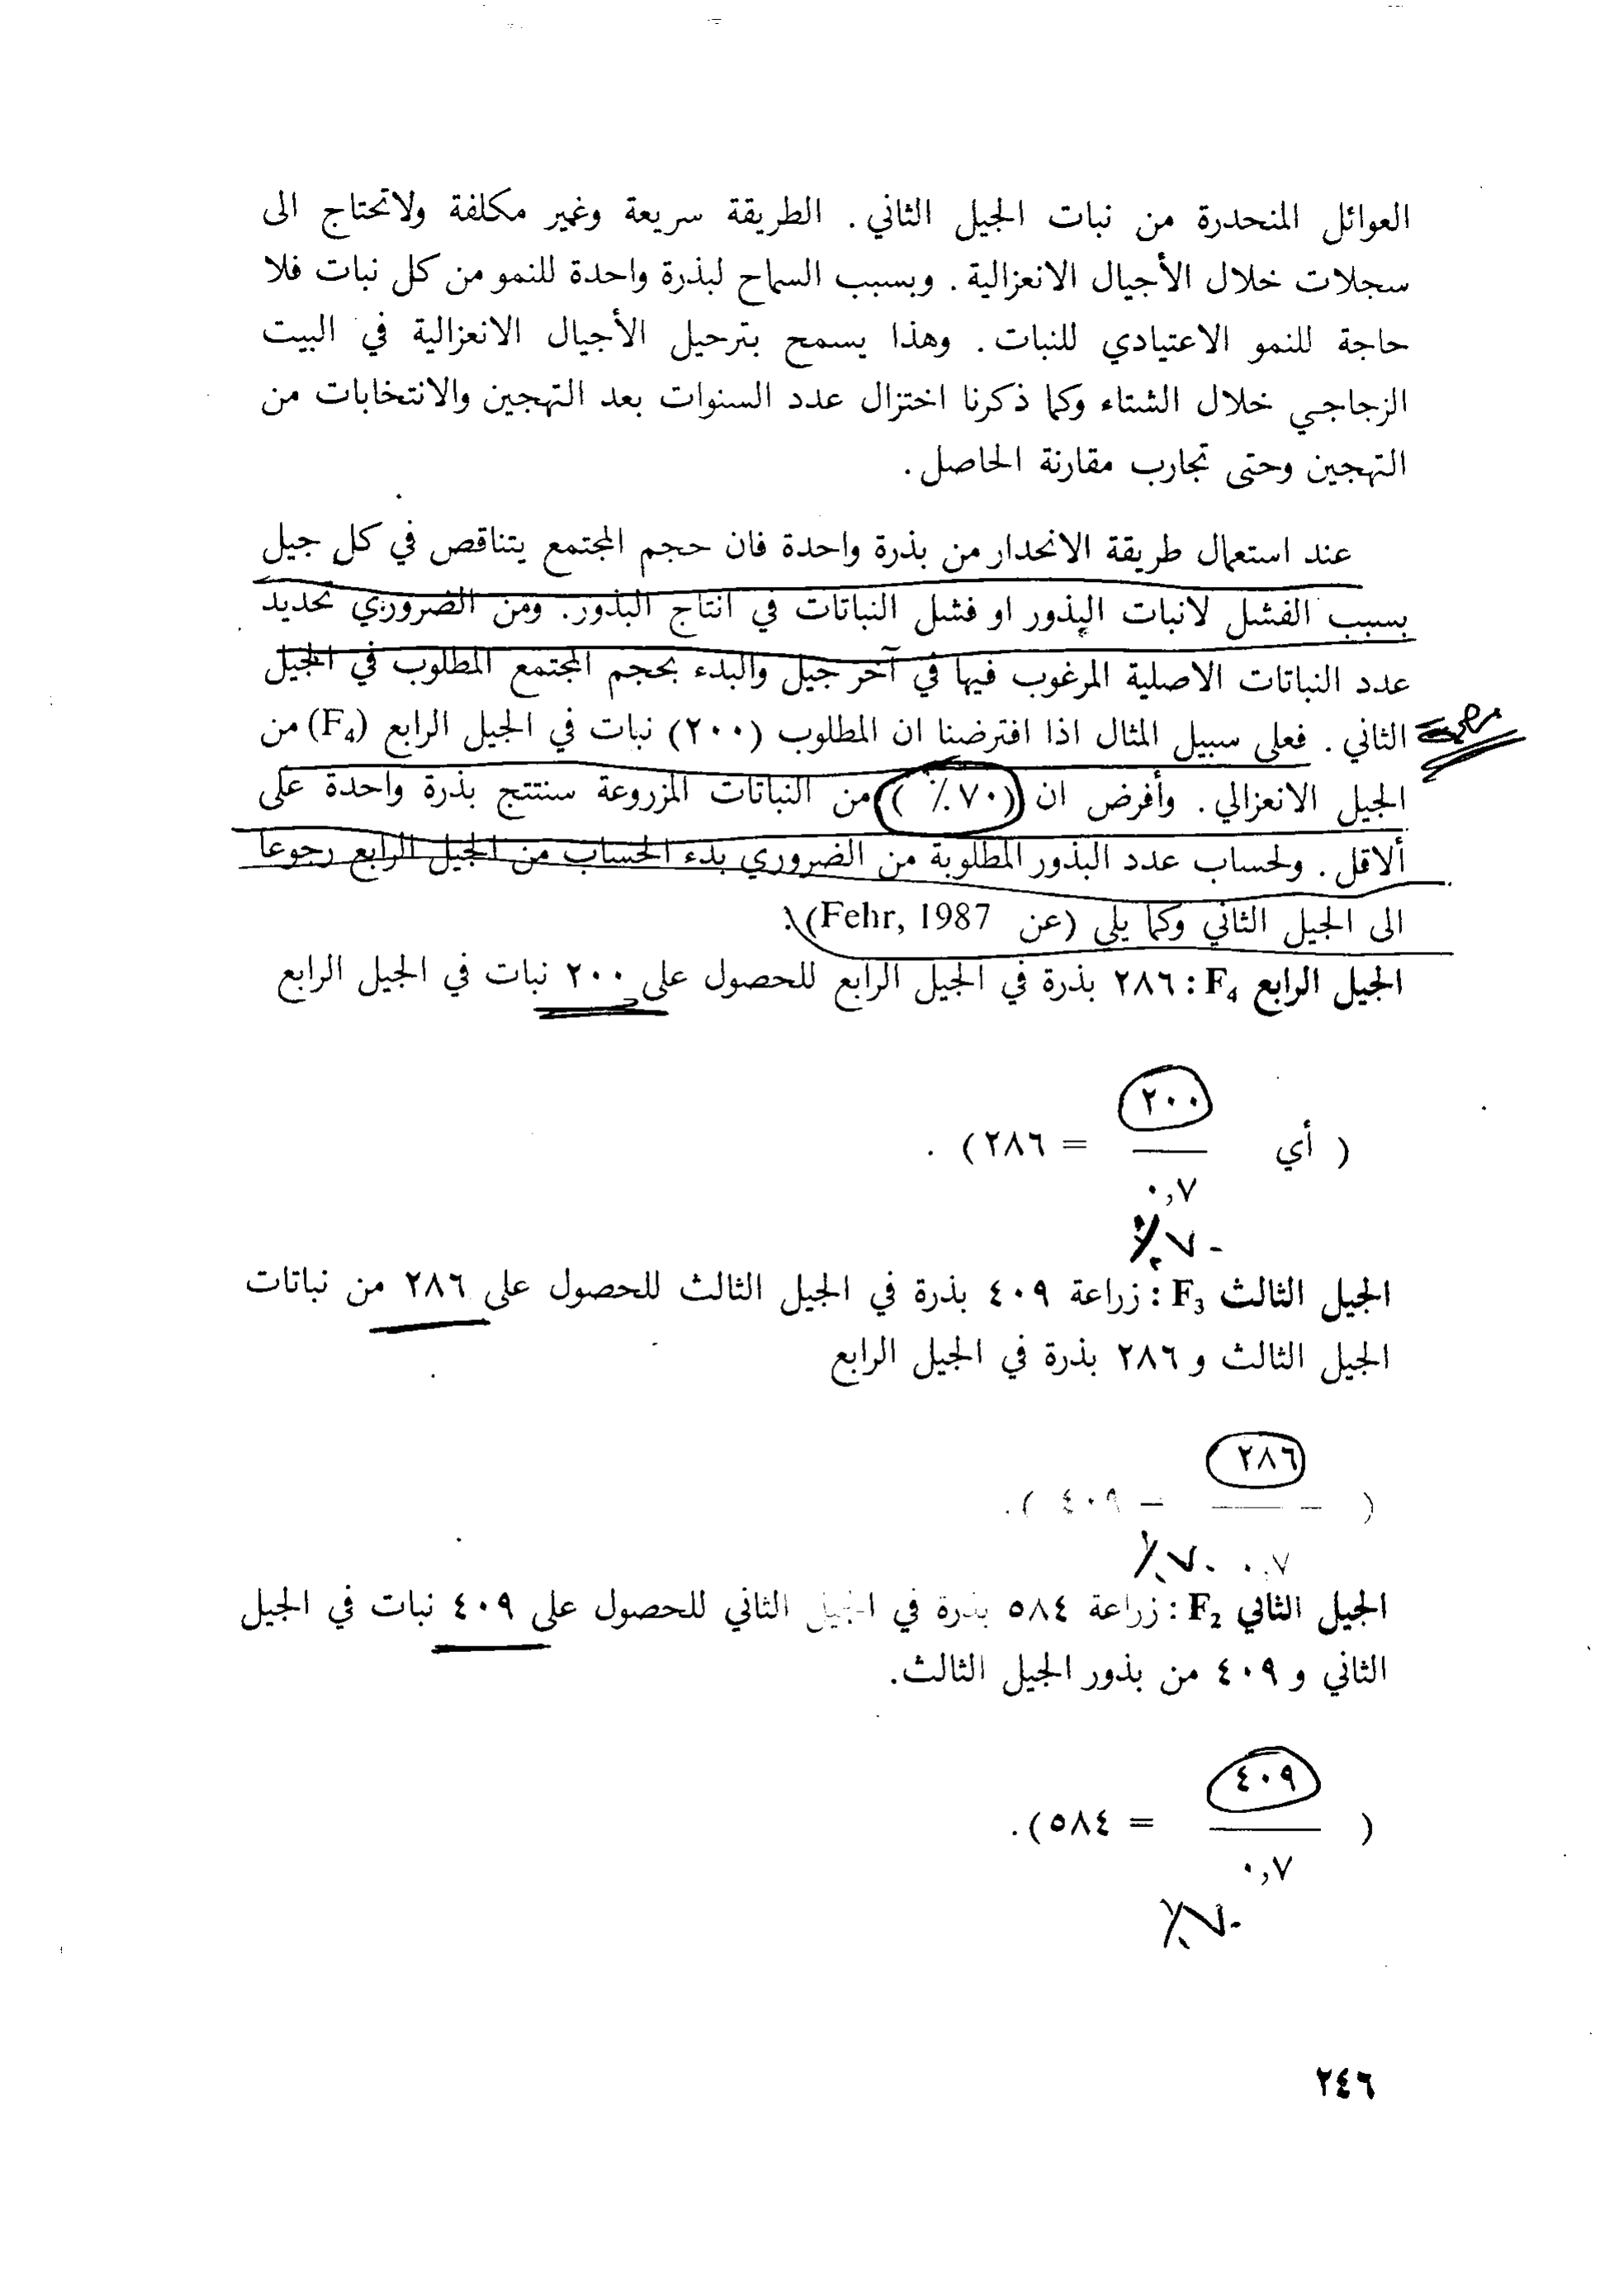 العوائل المنحدرة من نبات الجيل الثاني. الطريقة سريعة وغير مكلفة ولاتحتاج الى
سجلات خلال الأجيال الانعزالية. وبسبب السماح لبذرة واحدة للنمو من كل نبات فلا
حاجة للنمو الاعتيادي للنبات. وهذا يسمح بترحيل الأجيال الانعزالية في البيت
الزجاجي خلال الشتاء وكما ذكرنا اختزال عدد السنوات بعد التهجين والانتخابات من
التهجين وحتى تجارب مقارنة الحاصل.
عند استعمال طريقة الانحدار من بذرة واحدة فان حجم المجتمع يتناقص في كل جيل
بسبب الفشل لانبات البذور او فشل النباتات في انتاج البذور. ومن الضروري تحديد
عدد النباتات الاصلية المرغوب فيها في آخر جيل والبدء بحجم المجتمع المطلوب في الجيل
الثاني. فعلى سبيل المثال اذا افترضنا ان المطلوب (٢٠٠) نبات في الجيل الرابع (F₄) من
الجيل الانعزالي. وأفرض ان (٧٠٪) من النباتات المزروعة سنتتج بذرة واحدة على
ألاقل. ولحساب عدد البذور المطلوبة من الضروري بدء الحساب من الجيل الرابع رجوعا
الى الجيل الثاني وكما يلي (عن Fehr, 1987).
الجيل الرابع F₄: ٢٨٦ بذرة في الجيل الرابع للحصول على ٢٠٠ نبات في الجيل الرابع
٢٠٠
( أي ــــ = ٢٨٦) .
٠,٧
٧٠٪
الجيل الثالث F₃: زراعة ٤٠٩ بذرة في الجيل الثالث للحصول على ٢٨٦ من نباتات
الجيل الثالث و ٢٨٦ بذرة في الجيل الرابع
٢٨٦
( ــــ = ٤٠٩ ).
٠,٧ ٧٠٪
الجيل الثاني F₂: زراعة ٥٨٤ بذرة في الجيل الثاني للحصول على ٤٠٩ نبات في الجيل
الثاني و ٤٠٩ من بذور الجيل الثالث.
٤٠٩
( ــــ = ٥٨٤).
٠,٧
٧٠٪
٢٤٦